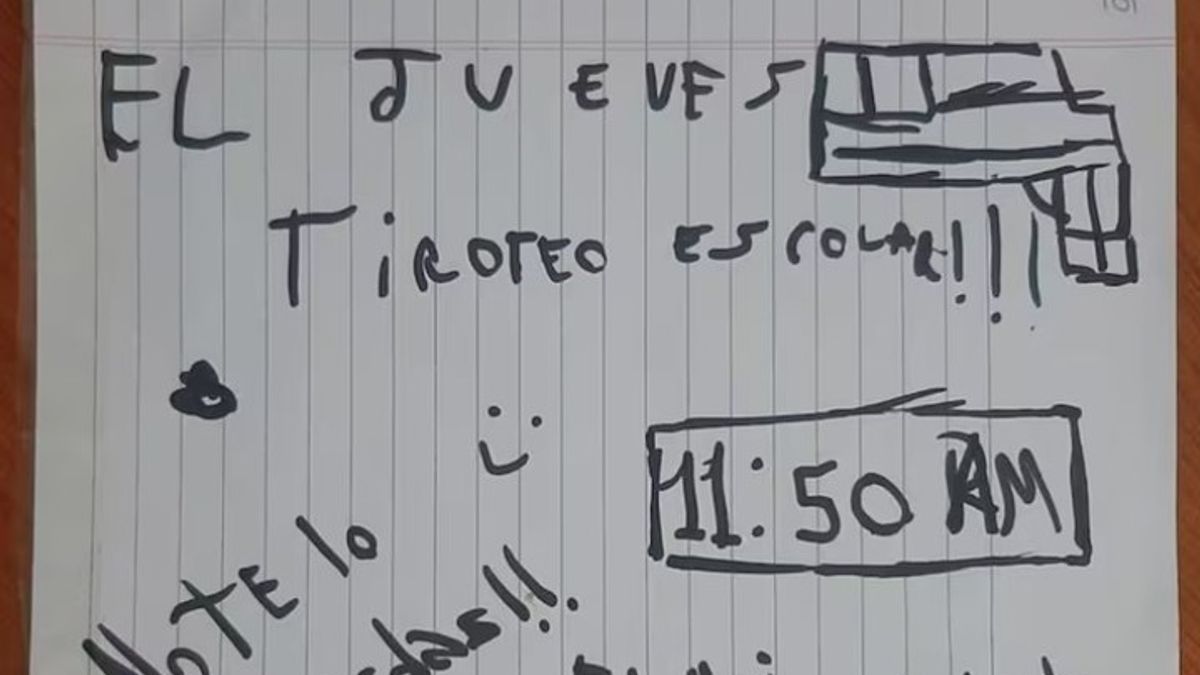 EL JUEVES
TiROTEO ESCOLAR!!!
11:50 AM
NO TE lo